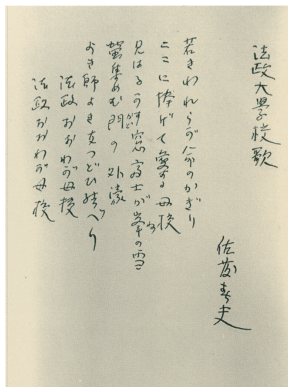 法政大学校歌
佐藤春夫
若きわれらが命のかぎり
ここに捧げて愛する母校
見はるかす窓富士が峯の雪
蛍集めむ門の外濠
よき師よき友つどひ結べり
法政おおわが母校
法政おおわが母校